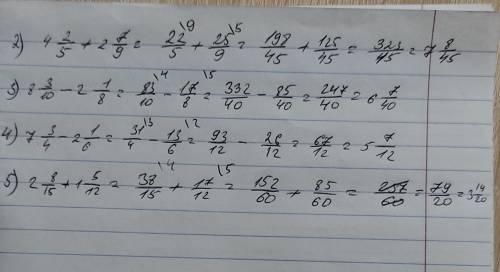 2) 4 2/5 + 2 7/9 = 22/5 \9 + 25/9 \5 = 198/45 + 125/45 = 323/45 = 7 8/45
3) 8 3/10 - 2 1/8 = 83/10 \4 - 17/8 \5 = 332/40 - 85/40 = 247/40 = 6 7/40
4) 7 3/4 - 2 1/6 = 31/4 \3 - 13/6 \2 = 93/12 - 26/12 = 67/12 = 5 7/12
5) 2 8/15 + 1 5/12 = 38/15 \4 + 17/12 \5 = 152/60 + 85/60 = 237/60 = 79/20 = 3 19/20